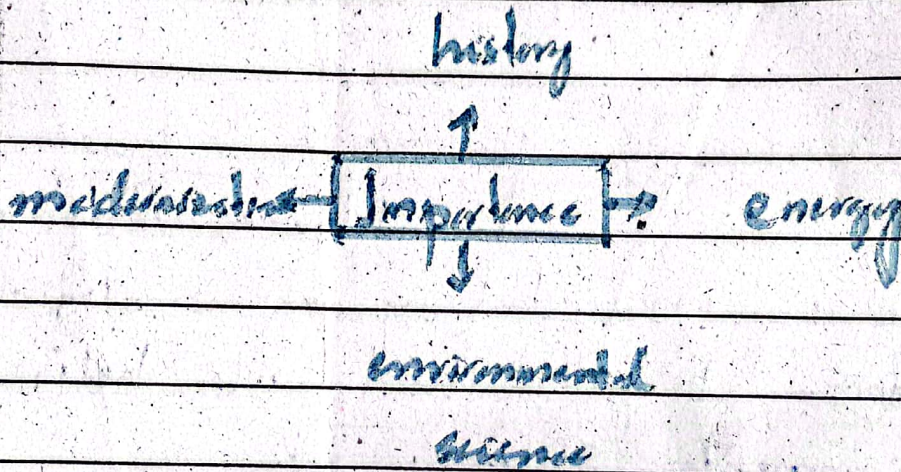 history
Importance energy
environmental
science